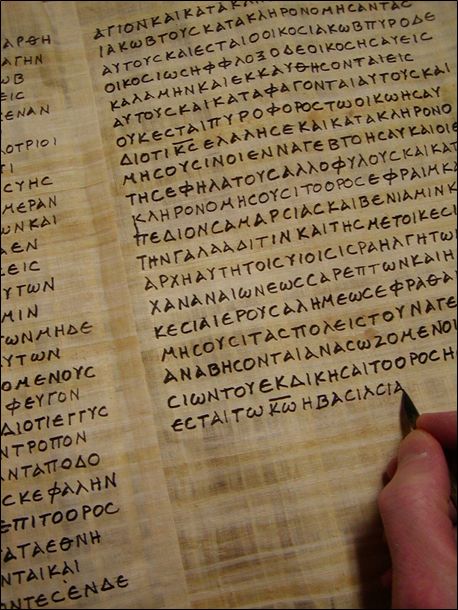 ΑΡΘΗ
ΑΓΗΝ
ΩΒ
ΕΙC
ΕΝΑΝ
ΛΟΤΡΙΟΙ
ΤΙ
CΥΗC
ΜΕΡΑΝ
ΩΝΚΑΙ
ΑΕΝ
CΕΙC
ΥΤΩΝ
ΜΙΝ
ΩΝΜΗΔΕ
ΥΤΩΝ
ΟΜΕΝΟΥC
ΦΕΥΓΟΝ
ΔΙΟΤΙΕΓΓΥC
ΝΤΡΟΠΟΝ
ΝΤΑΠΟΔΟ
CΚΕΦΑΛΗΝ
ΕΠΙΤΟΟΡΟC
ΑΤΑΕΘΝΗ
ΝΤΑΙΚΑΙ
ΟΝΤΕCΕΝΔΕ
ΑΓΙΟΝΚΑΙΚΑΤΑΚΛ
ΙΑΚΩΒΤΟΥCΚΑΤΑΚΛΗΡΟΝΟΜΗCΑΝΤΑC
ΑΥΤΟΥCΚΑΙΕCΤΑΙΟΟΙΚΟCΙΑΚΩΒΠΥΡΟΔΕ
ΟΙΚΟCΙΩCΗΦΦΛΟΞΟΔΕΟΙΚΟCΗCΑΥΕΙC
ΚΑΛΑΜΗΝΚΑΙΕΚΚΑΥΘΗCΟΝΤΑΙΕΙC
ΑΥΤΟΥCΚΑΙΚΑΤΑΦΑΓΟΝΤΑΙΑΥΤΟΥCΚΑΙ
ΟΥΚΕCΤΑΙΠΥΡΟΦΟΡΟCΤΩΟΙΚΩΗCΑΥ
ΔΙΟΤΙΚ̅C̅ΕΛΑΛΗCΕΚΑΙΚΑΤΑΚΛΗΡΟΝΟ
ΜΗCΟΥCΙΝΟΙΕΝΝΑΓΕΒΤΟΗCΑΥΚΑΙΟΙΕ
ΤΗCΕΦΗΛΑΤΟΥCΑΛΛΟΦΥΛΟΥCΚΑΙΚΑΤ
ΚΛΗΡΟΝΟΜΗCΟΥCΙΤΟΟΡΟCΕΦΡΑΙΜΚΑ
ΠΕΔΙΟΝCΑΜΑΡΕΙΑCΚΑΙΒΕΝΙΑΜΙΝΚ
ΤΗΝΓΑΛΑΑΔΙΤΙΝΚΑΙΤΗCΜΕΤΟΙΚΕCΙ
ΑΡΧΗΑΥΤΗΤΟΙCΥΙΟΙCΙCΡΑΗΛΓΗΤΩ
ΧΑΝΑΝΑΙΩΝΕΩCCΑΡΕΠΤΩΝΚΑΙΗ
ΚΕCΙΑΙΕΡΟΥCΑΛΗΜΕΩCΕΦΡΑΘΑ
ΜΗCΟΥCΙΤΑCΠΟΛΕΙCΤΟΥΝΑΓΕ
ΑΝΑΒΗCΟΝΤΑΙΑΝΑCΩΖΟΜΕΝΟΙ
CΙΩΝΤΟΥΕΚΔΙΚΗCΑΙΤΟΟΡΟCΗ
ΕCΤΑΙΤΩΚ̅Ω̅ΗΒΑCΙΛΕΙΑ